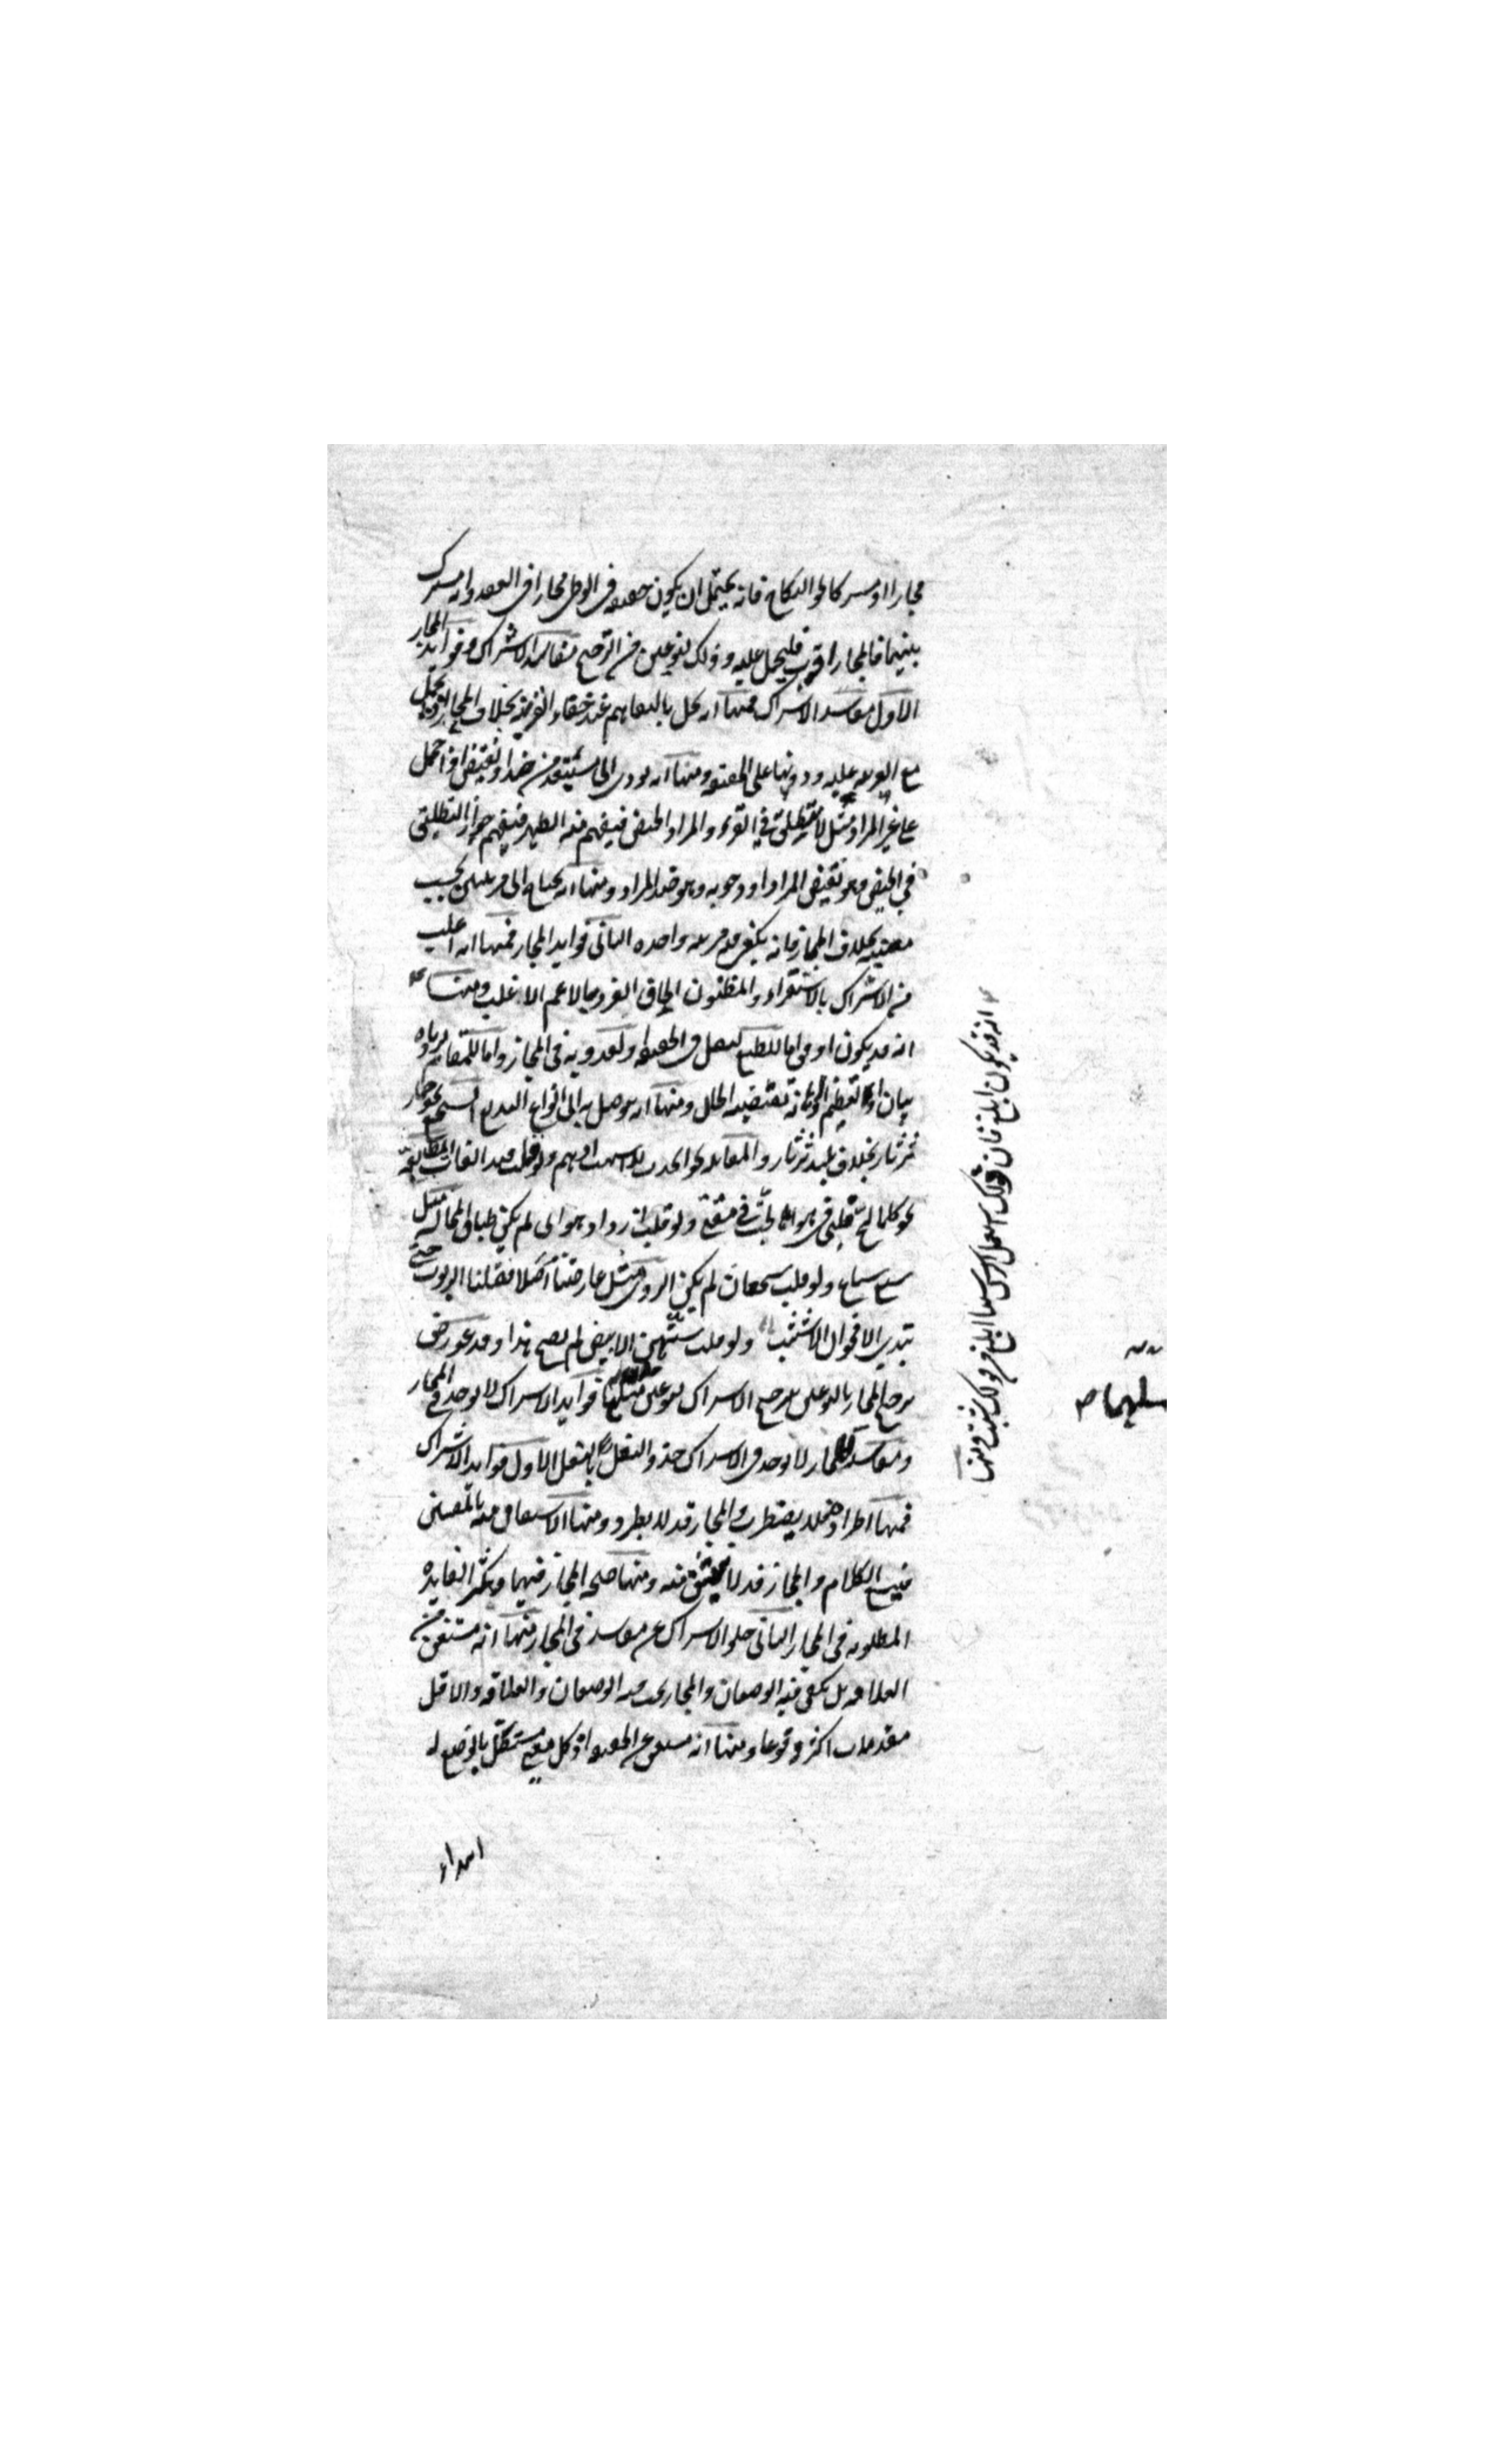 مجازا او مشتركا كالنكاح فانه يحتمل ان يكون حقيقة فى الوطى مجازا فى العقد وانه مشترك
بينهما فالمجاز اقرب فليحمل عليه وذلك لنوعين من الترجيح مفاسد الاشتراك وفوايد المجاز
الاول مفاسد الاشتراك فمنها انه يخل بالتفاهم عند خفاء القرينة بخلاف المجاز اذ يحمل
مع القرينة عليه ودونها على الحقيقة ومنها انه يودى الى مستبعد من ضد او نقيض اذا حمل
على غير المراد مثل لا تطلق فى القرء والمراد الحيض فيفهم منه الطهر فيفهم جواز التطليق
فى الحيض وهو نقيض المراد او وجوبه وهو ضد المراد ومنها انه يحتاج الى قرينتين بحسب
معنييه بخلاف المجاز فانه يكفى فيه قرينة واحدة الثانى فوايد المجاز فمنها انه اغلب
من الاشتراك بالاستقراء والمظنون الحاق الفرد بالاعم الاغلب ومنها
انه قد يكون اوفق اما للطبع لثقل فى الحقيقة او لعذوبة فى المجاز واما للمقام لزيادة
بيان او تعظيم او اهانة تقتضيه الحال ومنها انه يتوصل به الى انواع البديع السجع نحو حمار
ثرثار بخلاف بليد ثرثار والمقابلة نحو
نحو كلما لج قلبى فى هواها لجت فى مقتى ولو قلت ازداد هواى لم يكن طباق المجانسة مثل
سبع سباع ولو قلت شجعان لم يكن الروى مثل عارضننا اصلا فقلنا الربرب حتى
تبدى الاقحوان الاشنب ولو قلت سنهن الابيض لم يصح هذا وقد عورض
ترجيح المجاز بالنوعين بترجيح الاشتراك بنوعين مثلهما فوايد الاشتراك لا توجد فى المجاز
ومفاسد للمجاز لا توجد فى الاشتراك حذو النعل بالنعل الاول فوايد الاشتراك
فمنها اطراده فلا يضطرب والمجاز قد لا يطرد ومنها الاشتقاق منه بالمعنيين
فيتسع الكلام والمجاز قد لا يشتق منه ومنها صحة المجاز فيهما وتكثر الفايدة
المطلوبة فى المجاز الثانى خلو الاشتراك عن مفاسد فى المجاز فمنها انه مستغن عن
العلاقة بل يكفى فيه الوضعان والمجاز يجب فيه الوضعان والعلاقة والاقل
مقدمات اكثر وقوعا ومنها انه مستغن عن الحقيقة اذ كل معنى مستقل بالوضع له
ابتداء
انه قد يكون ابلغ فان قولك اشتعل الراس شيبا ابلغ من قولك شبت ومنها